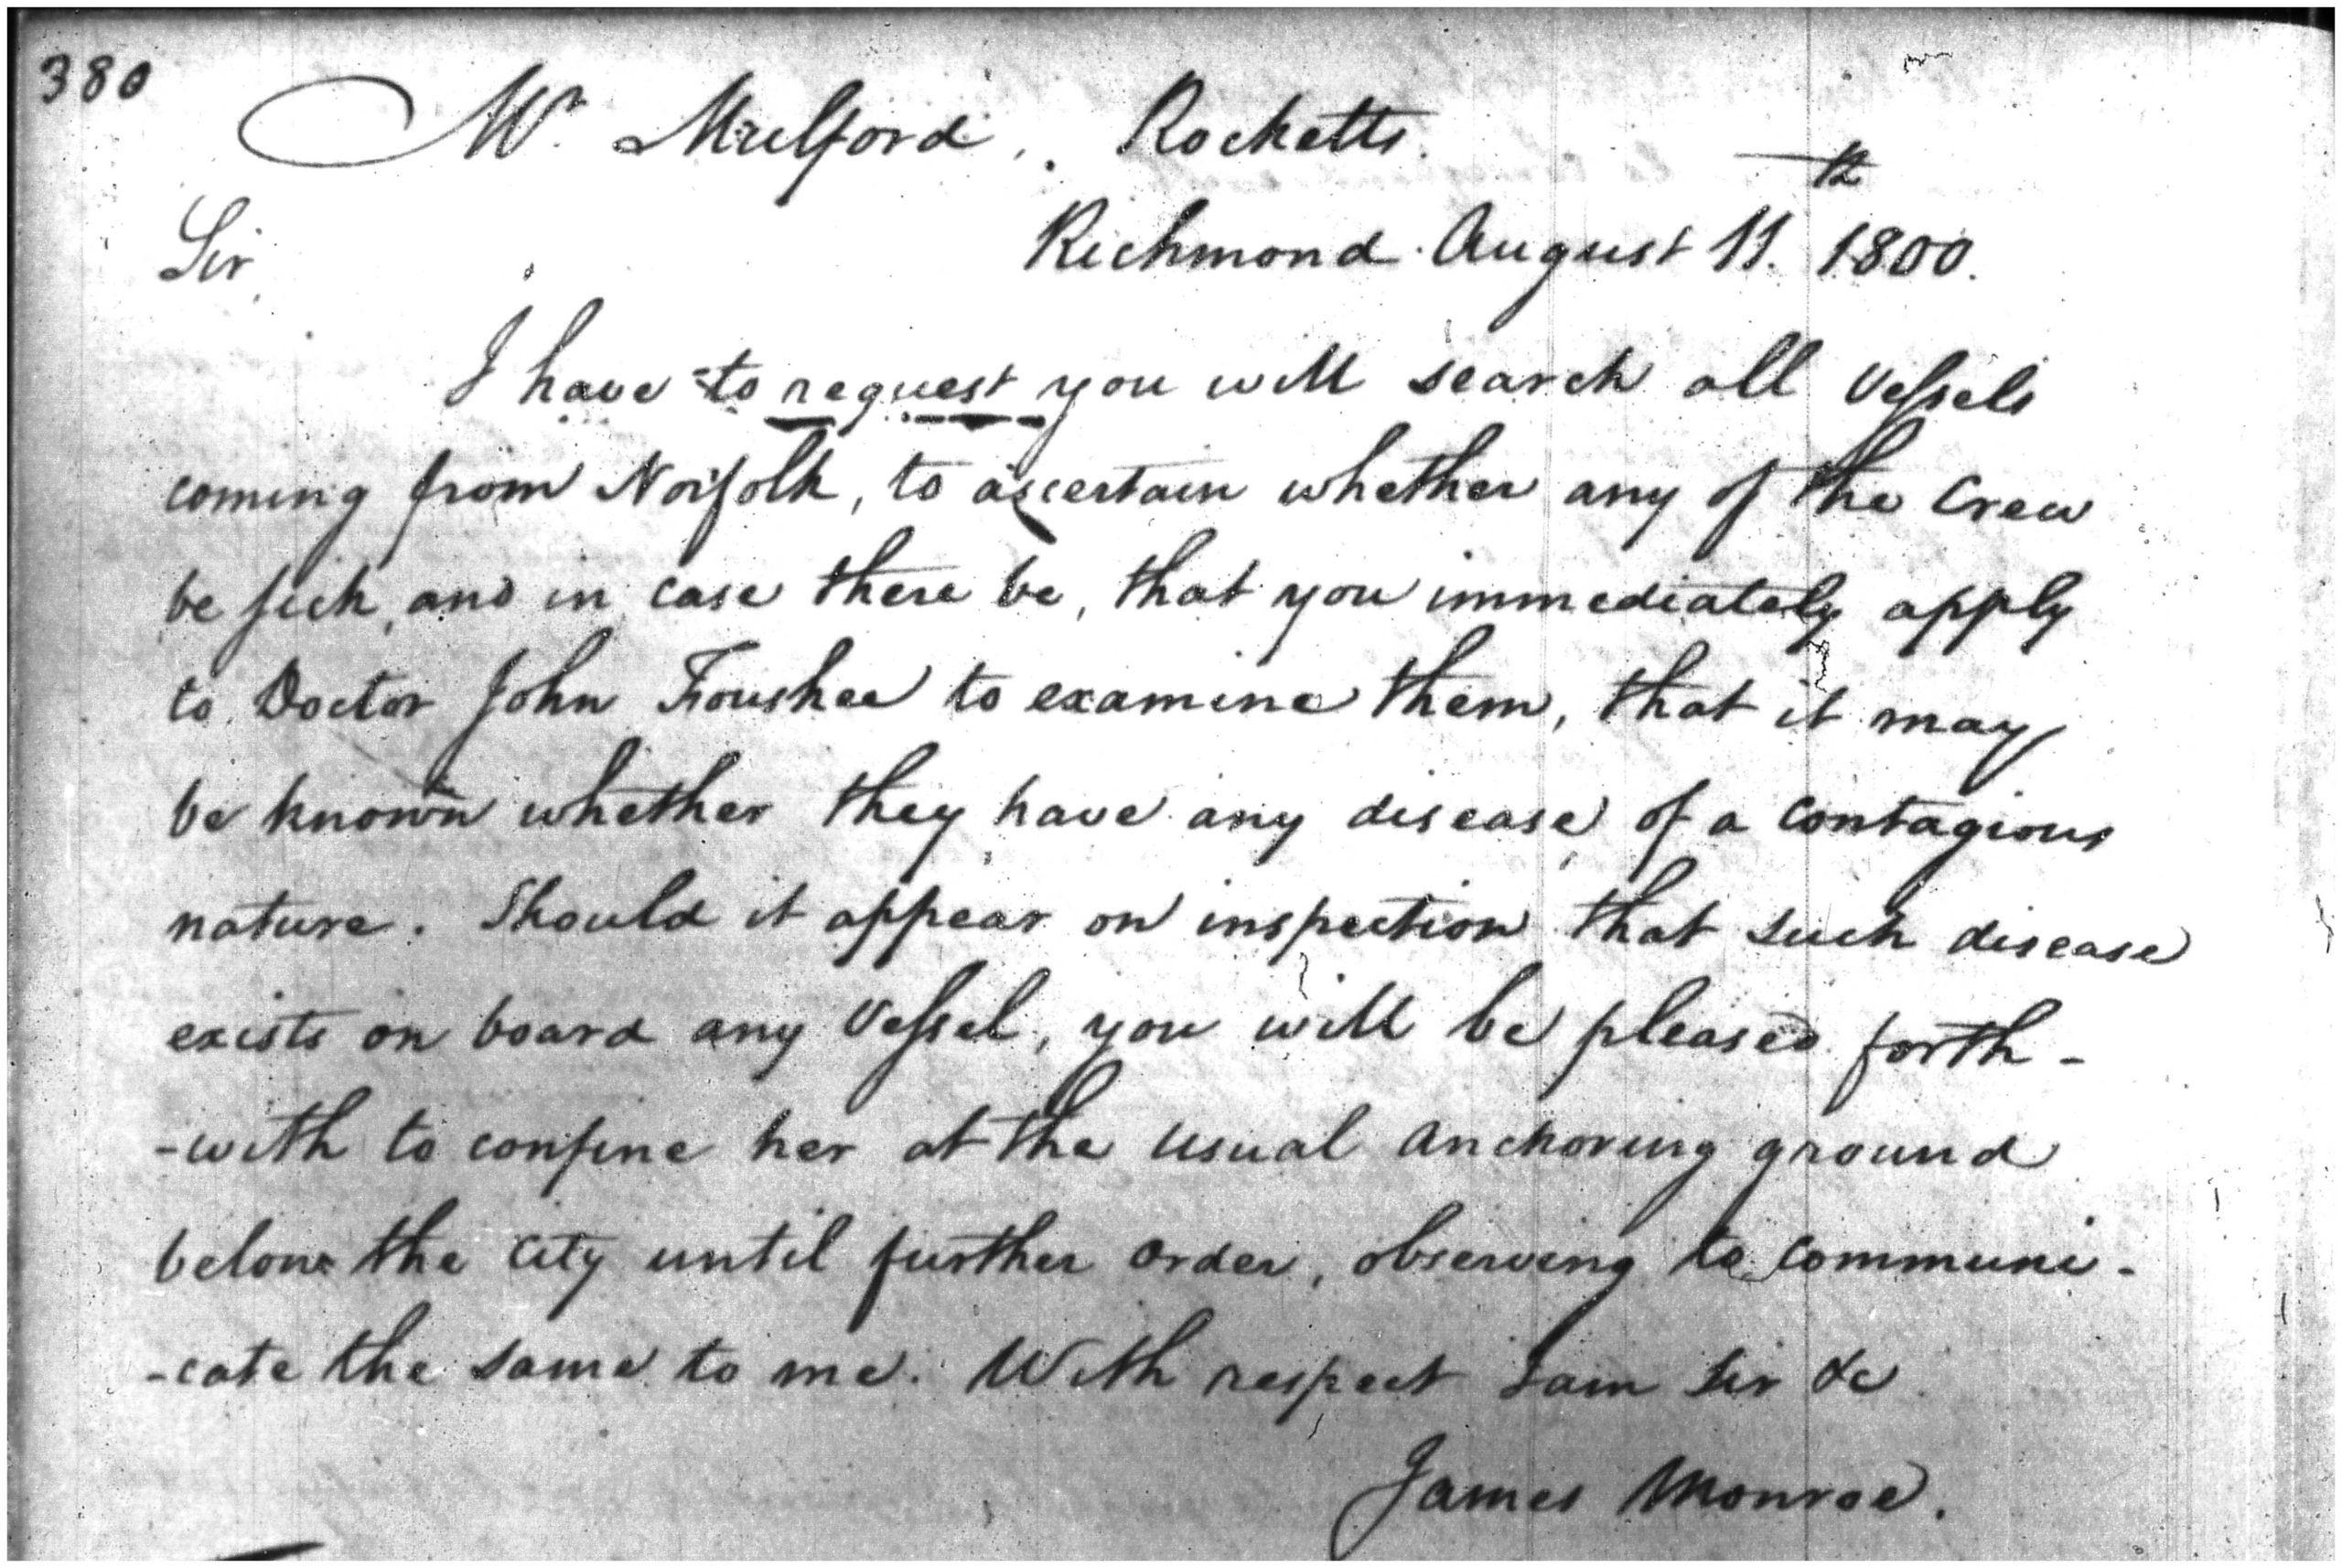 380
Mr. Mulford, Rocketts.
12
Richmond August 11. 1800.
Sir,
I have to request you will search all Vessels
coming from Norfolk, to ascertain whether any of the Crew
be sick, and in case there be, that you immediately apply
to Doctor John Foushee to examine them, that it may
be known whether they have any disease of a contagious
nature. Should it appear on inspection that such disease
exists on board any Vessel, you will be pleased forth-
-with to confine her at the usual anchoring ground
below the City until further order, observing to communi-
-cate the same to me. With respect I am Sir &c
James Monroe.